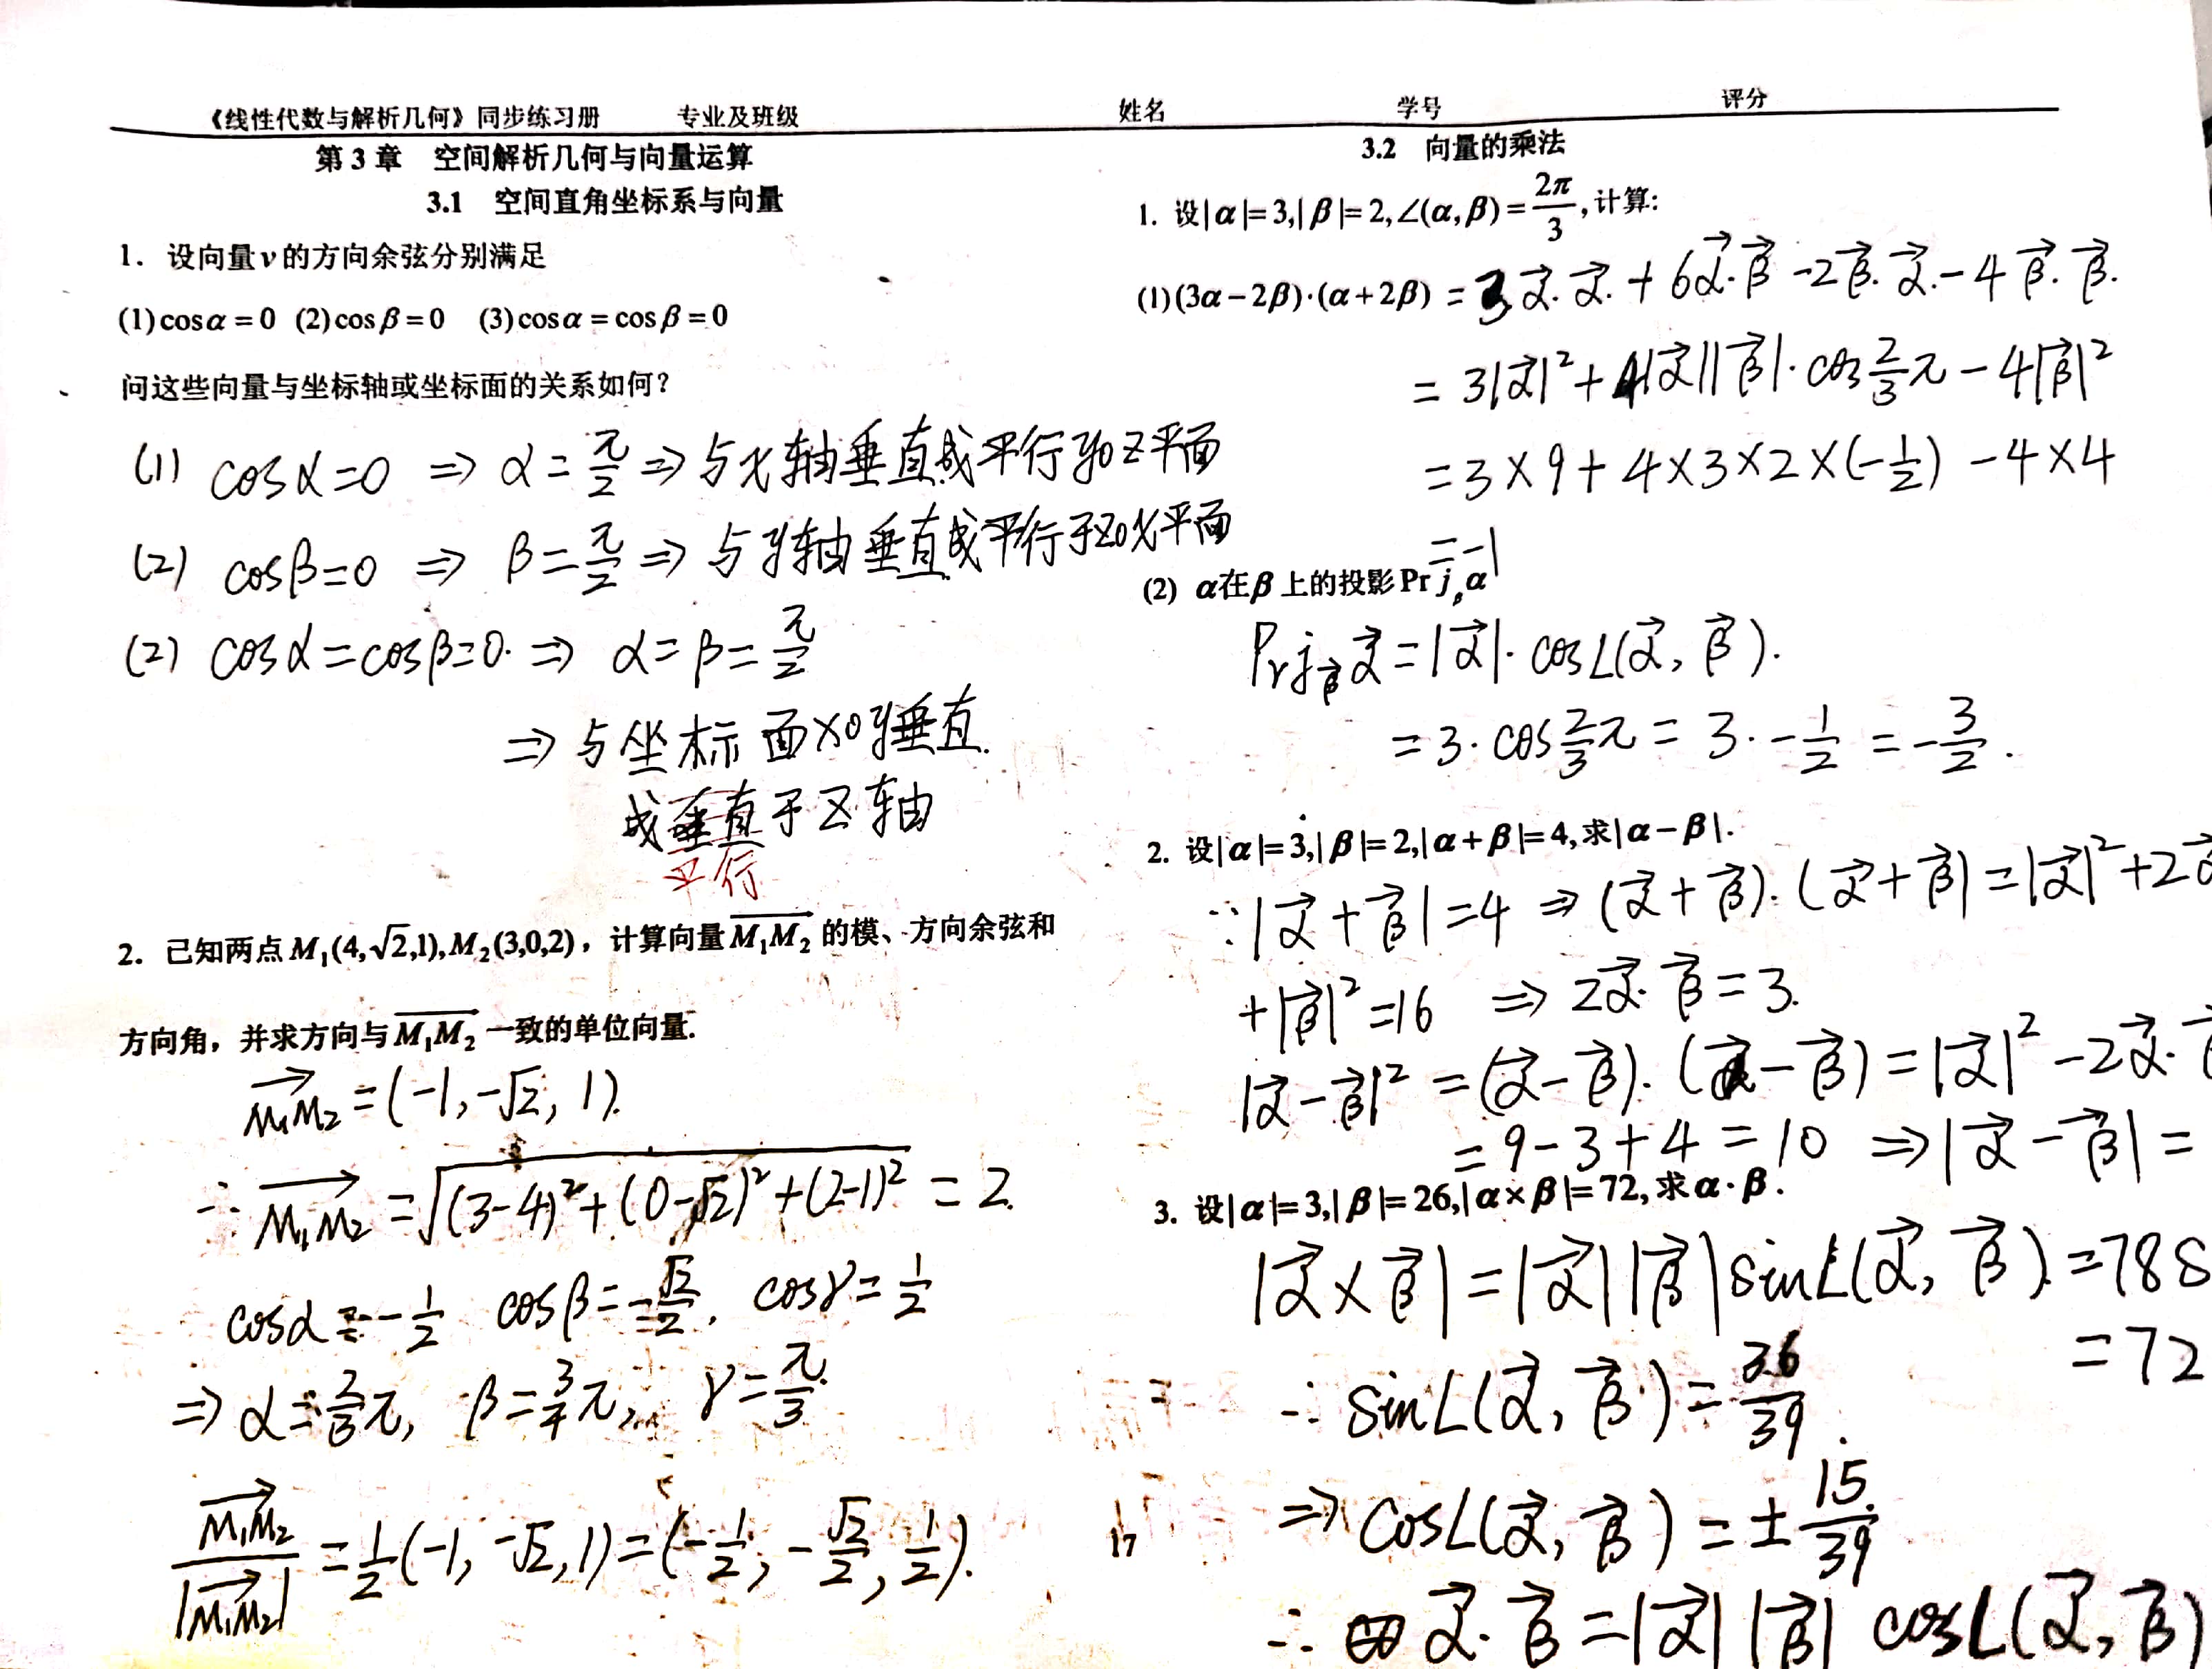 《线性代数与解析几何》同步练习册 专业及班级 姓名 学号 评分
第3章 空间解析几何与向量运算
3.1 空间直角坐标系与向量
1. 设向量v的方向余弦分别满足
(1)cosα=0 (2)cosβ=0 (3)cosα=cosβ=0
问这些向量与坐标轴或坐标面的关系如何?
(1) cosα=0 ⇒ α=π/2 ⇒ 与x轴垂直或平行yoz平面
(2) cosβ=0 ⇒ β=π/2 ⇒ 与y轴垂直或平行于zox平面
(2) cosα=cosβ=0. ⇒ α=β=π/2
⇒ 与坐标面xoy垂直.
或垂直于z轴
平行
2. 已知两点M₁(4,√2,1),M₂(3,0,2), 计算向量M₁M₂的模、方向余弦和
方向角, 并求方向与M₁M₂一致的单位向量.
M₁M₂=(-1,-√2,1).
∴ M₁M₂=√((3-4)²+(0-√2)²+(2-1)²)=2.
cosα=-1/2 cosβ=-√2/2, cosγ=1/2
⇒ α=2/3π, β=3/4π, γ=π/3.
M₁M₂/|M₁M₂|=1/2(-1,-√2,1)=(-1/2,-√2/2,1/2).
17
3.2 向量的乘法
1. 设|α|=3,|β|=2,∠(α,β)=2π/3,计算:
(1)(3α-2β)·(α+2β)=3α·α+6α·β-2β·α-4β·β.
=3|α|²+4|α||β|·cos2/3π-4|β|²
=3×9+4×3×2×(-1/2)-4×4
=-1
(2) α在β上的投影Prjβα
Prjβα=|α|·cos∠(α,β).
=3·cos2/3π=3·-1/2=-3/2.
2. 设|α|=3,|β|=2,|α+β|=4,求|α-β|.
∵|α+β|=4 ⇒ (α+β)·(α+β)=|α|²+2α
+|β|²=16 ⇒ 2α·β=3.
|α-β|²=(α-β)·(α-β)=|α|²-2α·β
=9-3+4=10 ⇒|α-β|=
3. 设|α|=3,|β|=26,|α×β|=72,求α·β.
|α×β|=|α||β|sin∠(α,β)=78s
=72
∴ sin∠(α,β)=36/39.
⇒ cos∠(α,β)=±15/39
∴ α·β=|α||β| cos∠(α,β)